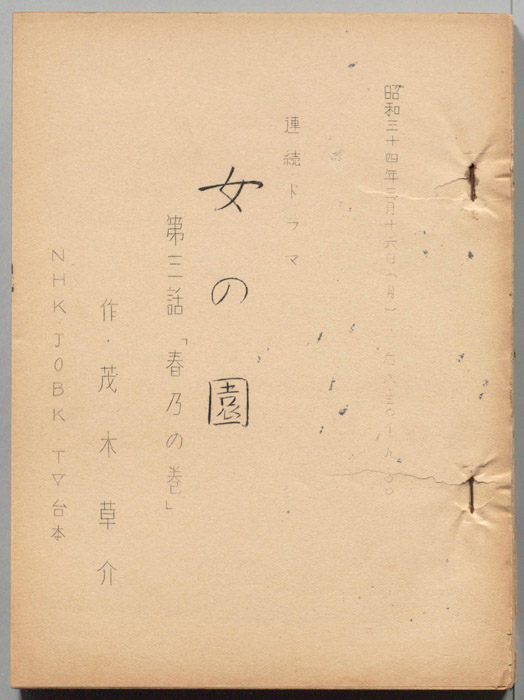 昭和三十四年三月十六日(月)
連続ドラマ
女の園
第三話「春乃の巻」
作・茂木草介
NHK・JOBK TV台本